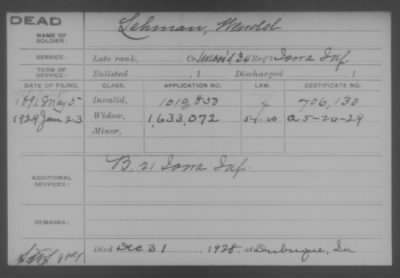 DEAD
NAME OF SOLDIER: Lehman, Wendel
SERVICE: Late rank, Co. 36 Reg't Iowa Inf.
TERM OF SERVICE: Enlisted , 1 Discharged , 1
DATE OF FILING. CLASS. APPLICATION NO. LAW. CERTIFICATE NO.
1891 May 5 Invalid, 1019,853 706,130
1929 Jan 23 Widow, 1,633,072 a 5-20-29
Minor,
ADDITIONAL SERVICES: B, 21 Iowa Inf.
REMARKS:
Died Dec 31 1928, at Dubuque, Ia